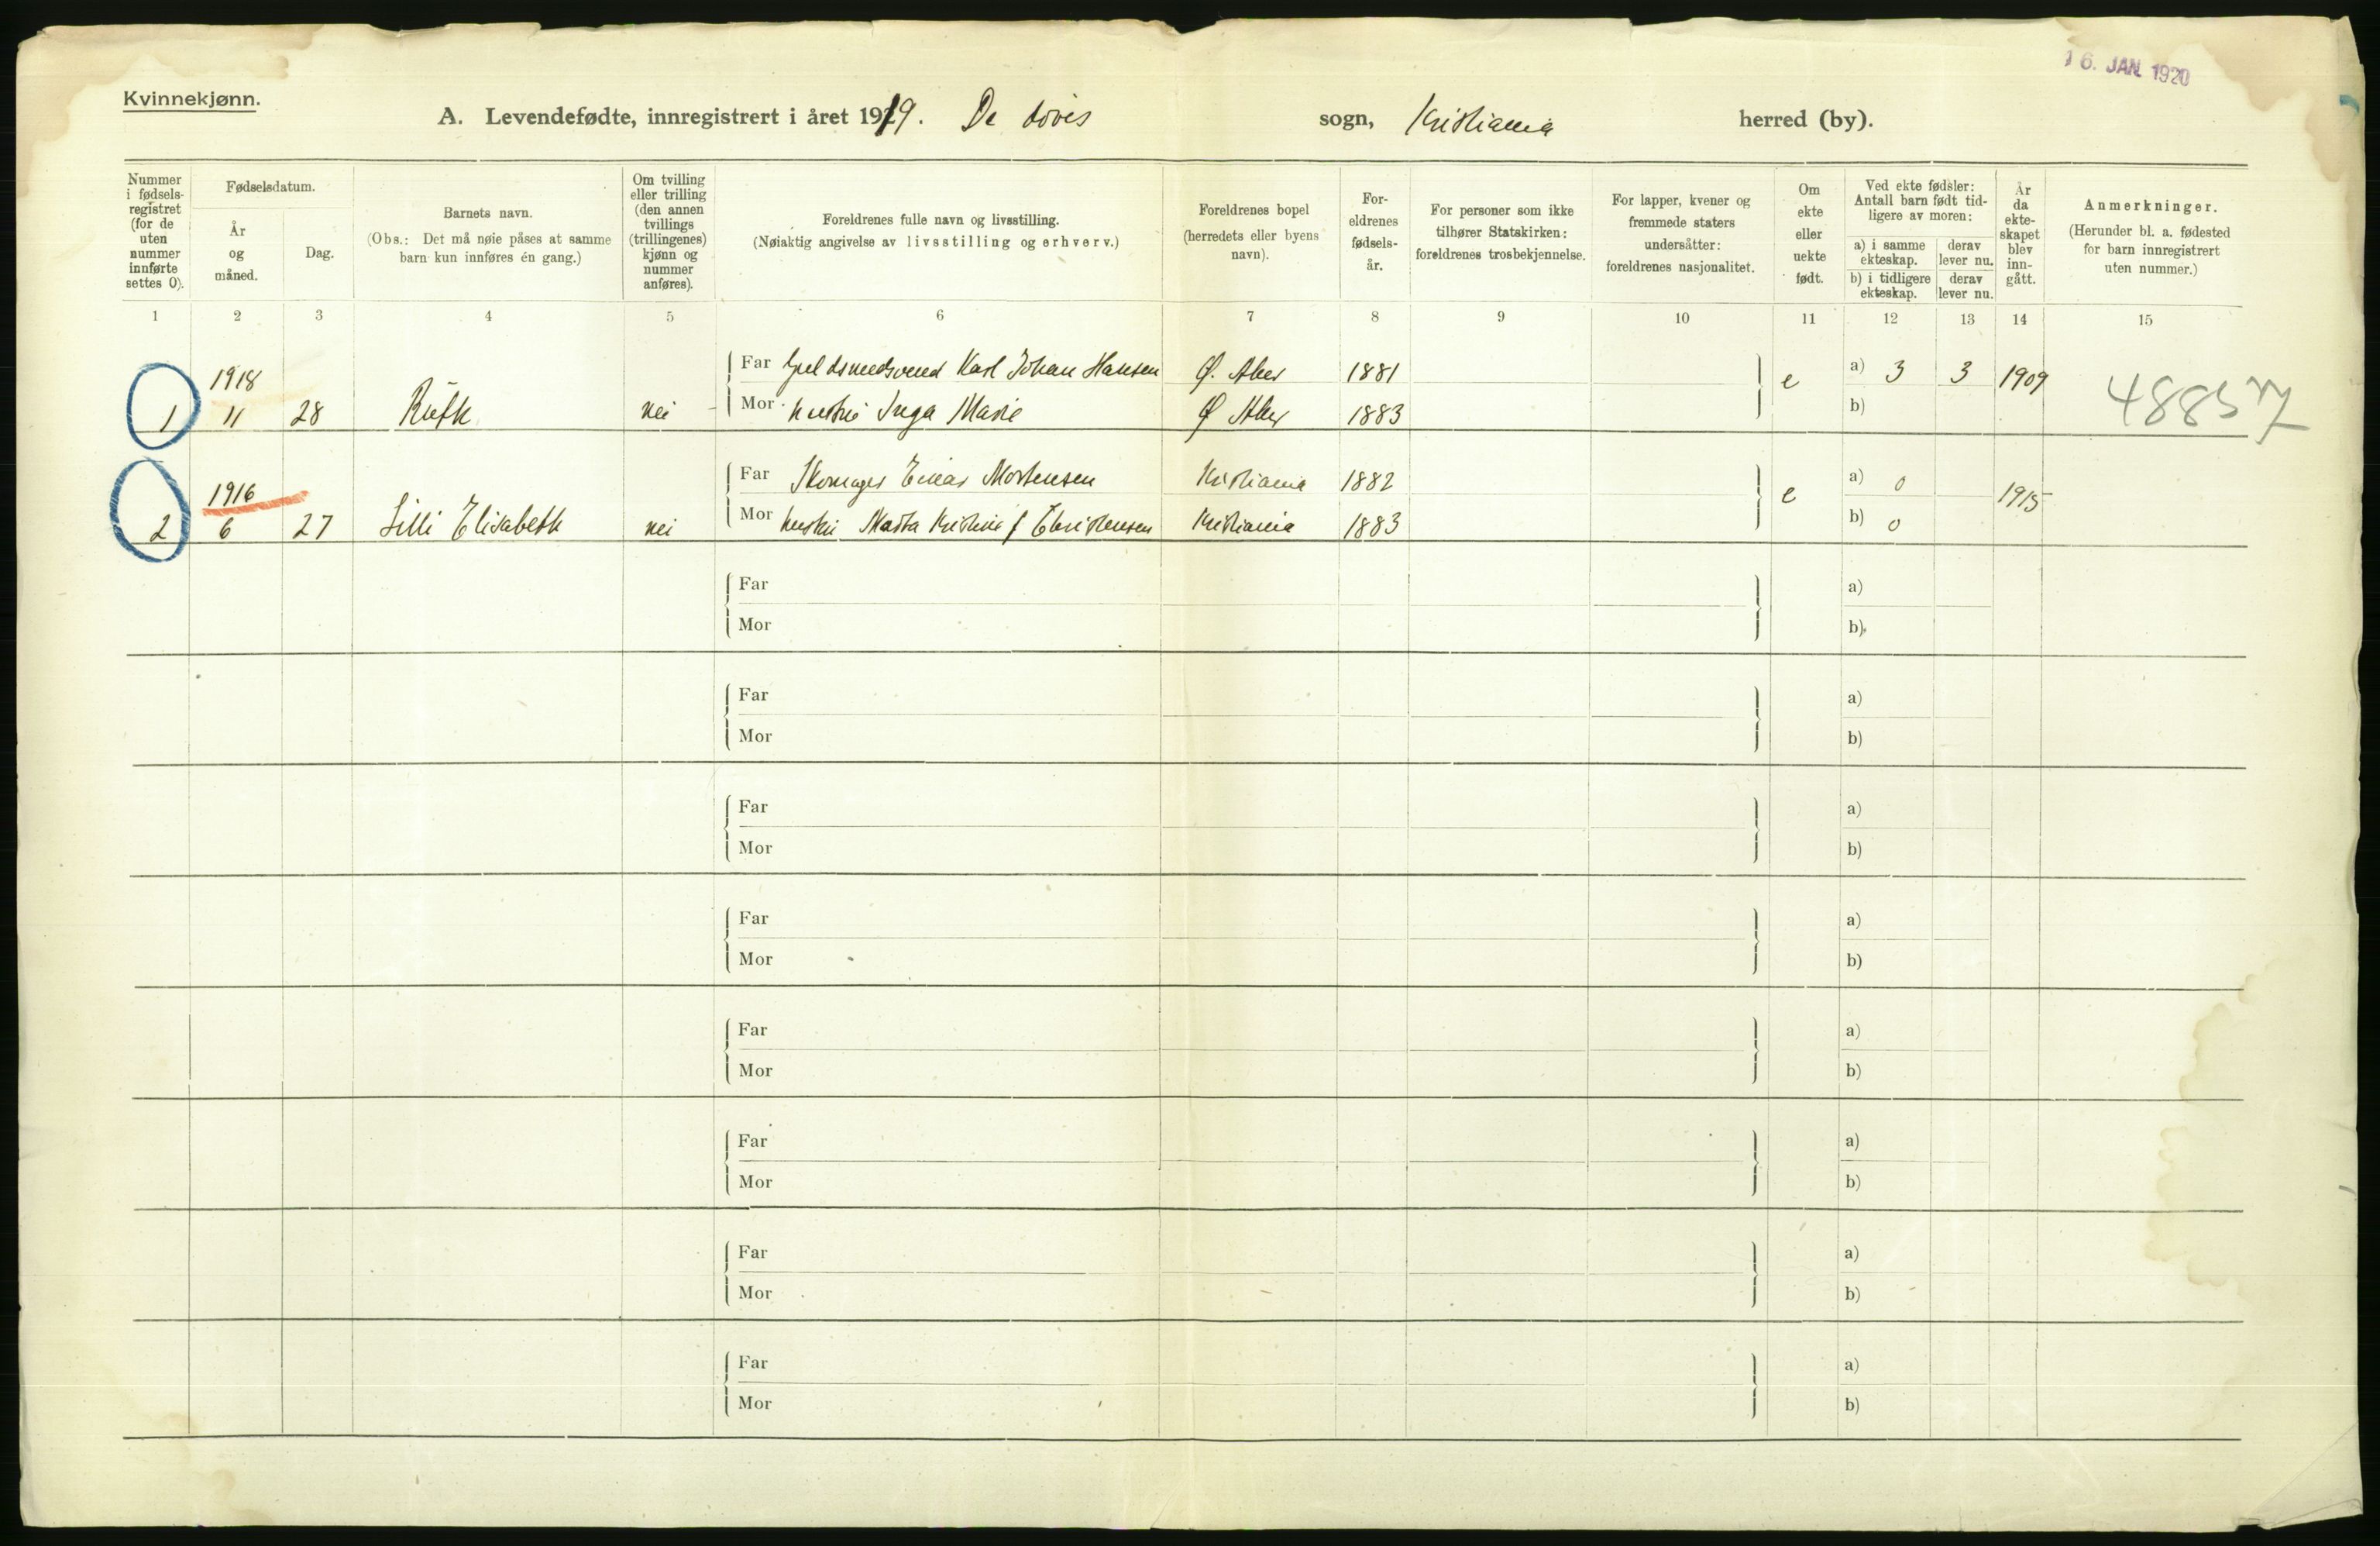 16. JAN. 1920
Kvinnekjønn.
A. Levendefødte, innregistrert i året 1919. De døves sogn, Kristiania herred (by).
Nummer i fødsels-registret (for de uten nummer innførte settes 0).
Fødselsdatum.
År og måned.
Dag.
Barnets navn.
(Obs.: Det må nøie påses at samme barn kun innføres én gang.)
Om tvilling eller trilling (den annen tvillings (trillingenes) kjønn og nummer anføres).
Foreldrenes fulle navn og livsstilling.
(Nøiaktig angivelse av livsstilling og erhverv.)
Foreldrenes bopel (herredets eller byens navn).
For-eldrenes fødsels-år.
For personer som ikke tilhører Statskirken: foreldrenes trosbekjennelse.
For lapper, kvener og fremmede staters undersåtter: foreldrenes nasjonalitet.
Om ekte eller uekte født.
Ved ekte fødsler: Antall barn født tid-ligere av moren:
a) i samme ekteskap.
derav lever nu.
b) i tidligere ekteskap.
derav lever nu.
År da ekte-skapet blev inn-gått.
Anmerkninger.
(Herunder bl. a. fødested for barn innregistrert uten nummer.)
1 2 3 4 5 6 7 8 9 10 11 12 13 14 15
1918
Far Guldsmedsvend Karl Johan Hansen Ø. Aker 1881 e a) 3 3 1909
1 11 28 Ruth nei Mor hustru Inga Marie Ø Aker 1883 b) 48857
1916
Far Skomager Einar Mortensen Kristiania 1882 e a) 0 1915
2 6 27 Lilli Elisabeth nei Mor hustru Marta Kristine f Christensen Kristiania 1883 b) 0
Far a)
Mor b)
Far a)
Mor b)
Far a)
Mor b)
Far a)
Mor b)
Far a)
Mor b)
Far a)
Mor b)
Far a)
Mor b)
Far a)
Mor b)